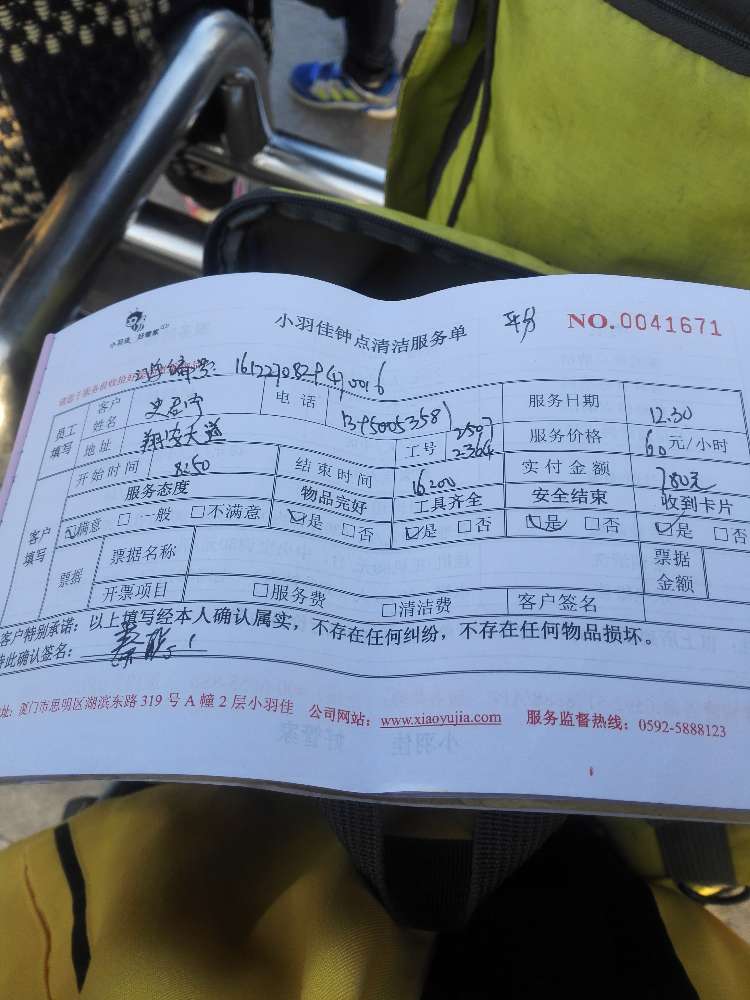 小羽佳 好管家
小羽佳钟点清洁服务单
NO.0041671
编号: 161227082940016
员工填写
客户姓名
电话
13950053581
服务日期
12.30
地址
翔安大道
工号
2507
2364
服务价格
60元/小时
客户填写
开始时间
8:50
结束时间
16:00
实付金额
780元
服务态度
物品完好
工具齐全
安全结束
收到卡片
☑满意 □一般 □不满意
☑是 □否
☑是 □否
☑是 □否
☑是 □否
票据
票据名称
票据金额
开票项目
□服务费 □清洁费
客户签名
客户特别承诺:以上填写经本人确认属实,不存在任何纠纷,不存在任何物品损坏。
特此确认签名:
地址:厦门市思明区湖滨东路 319 号 A 幢 2 层小羽佳 公司网站:www.xiaoyujia.com 服务监督热线:0592-5888123